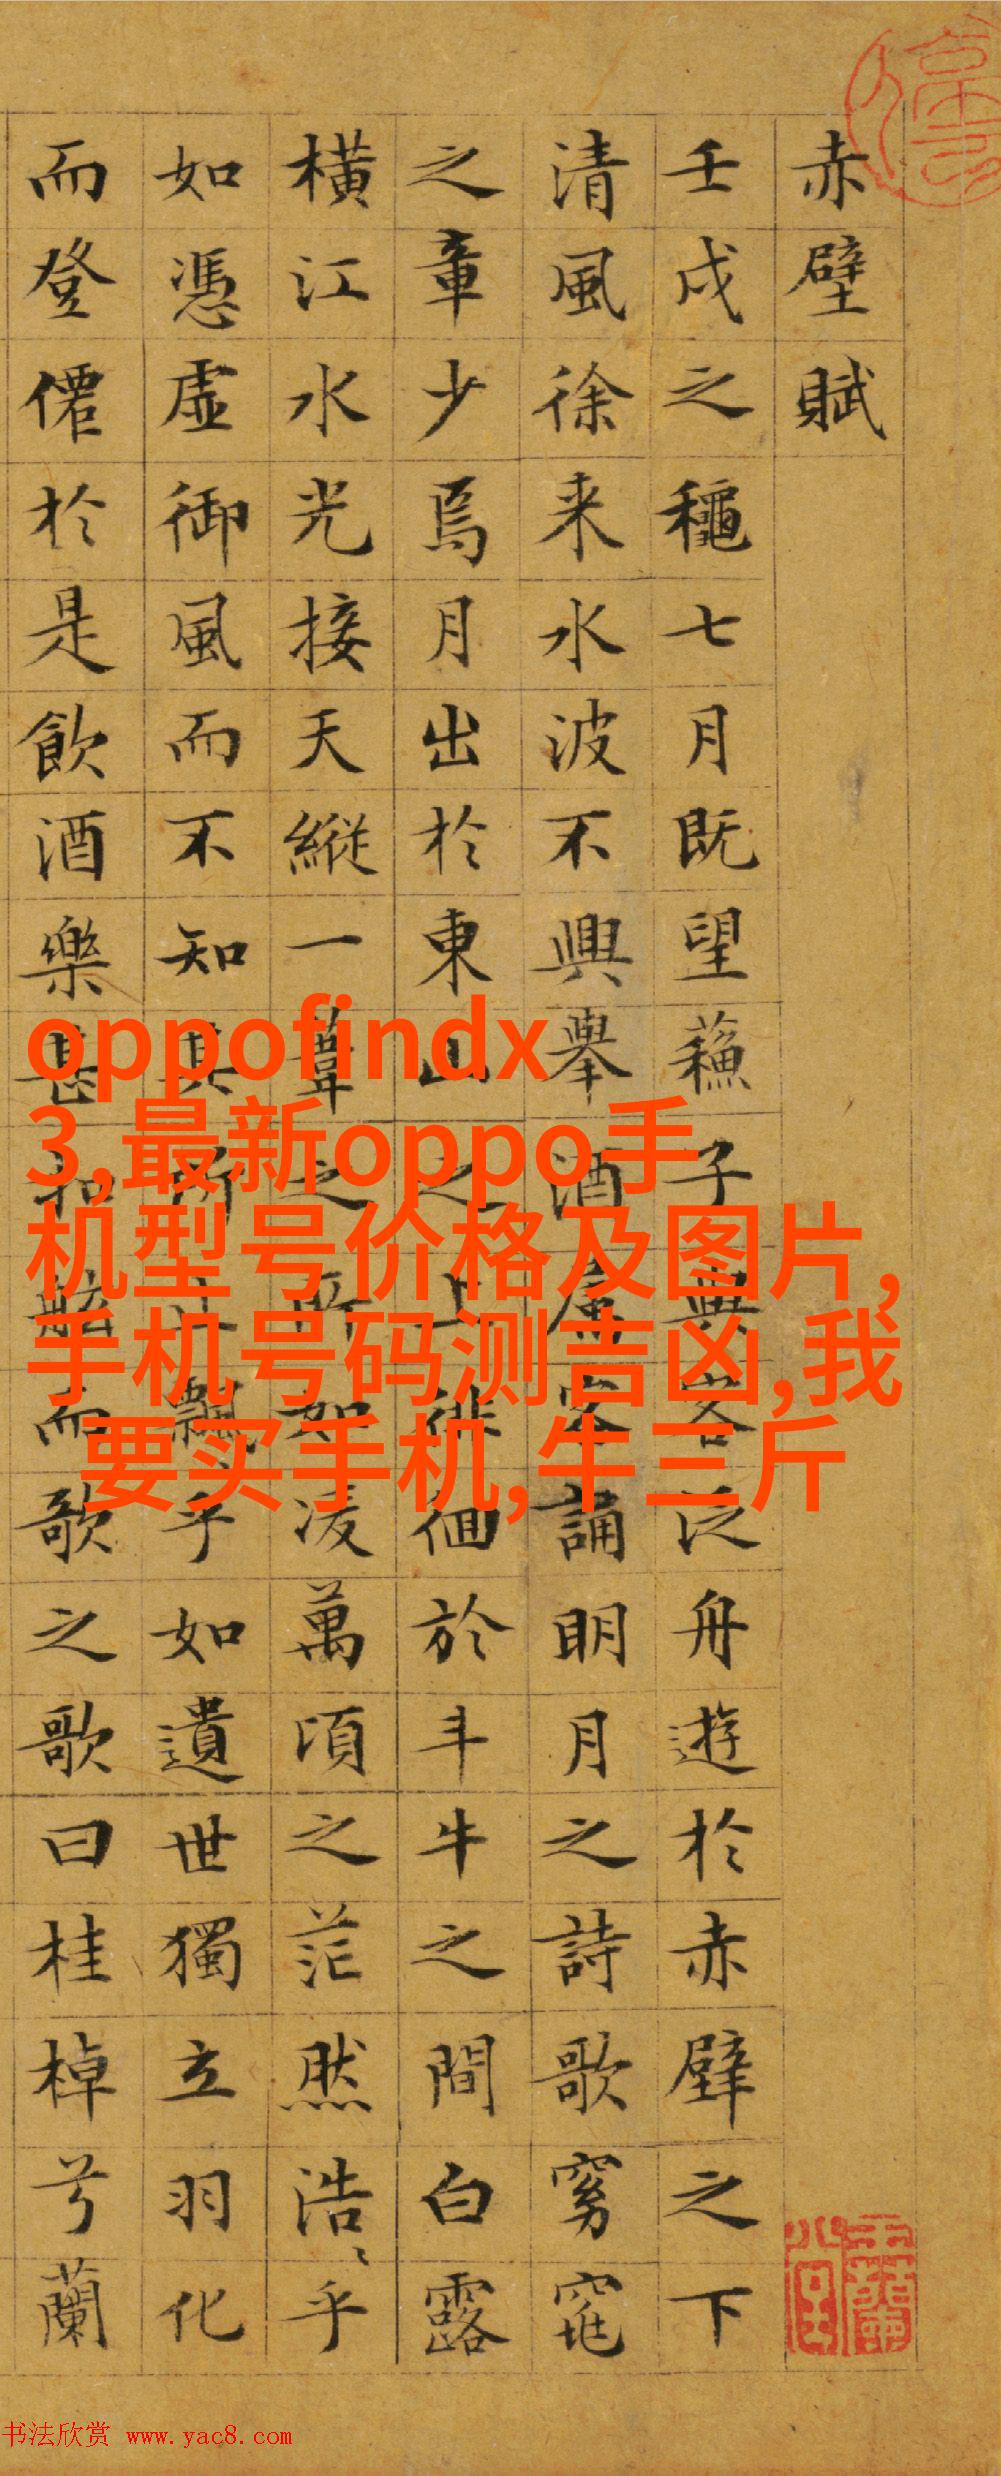 赤壁賦
壬戌之龝七月既望蘓子與客泛舟遊於赤壁之下
清風徐来水波不興舉酒屬客誦明月之詩歌窈窕
之章少焉月出於東山之上徘徊於斗牛之間白露
橫江水光接天縱一葦之所如凌萬頃之茫然浩〻乎
如憑虛御風而不知其所止飄乎如遺世獨立羽化
而登僊於是飲酒樂甚扣舷而歌之歌曰桂棹兮蘭
oppofindx
3,最新oppo手
机型号价格及图片,
手机号码测吉凶,我
要买手机,牛三斤
书法欣赏 www.yac8.com